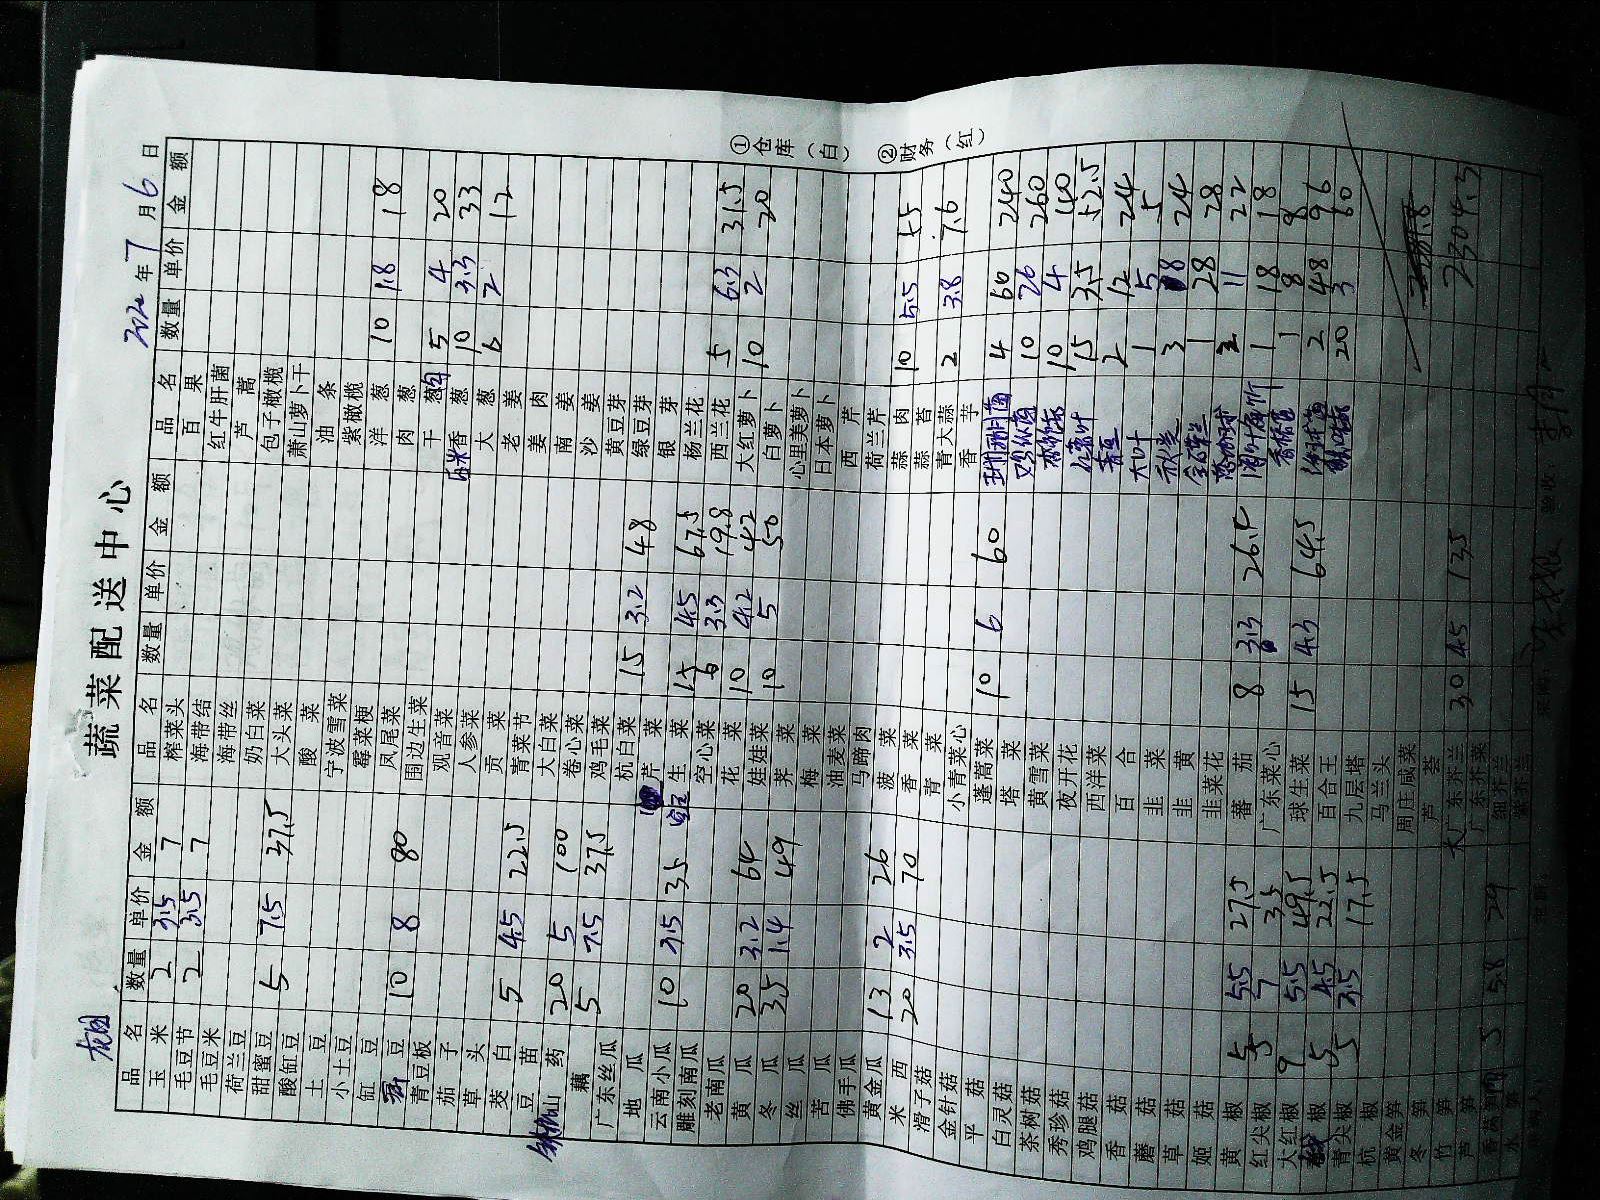 蔬菜配送中心
龙田 2020年7月6日
品名 数量 单价 金额 品名 数量 单价 金额 品名 数量 单价 金额
玉米 2 3.5 7
毛豆节 2 3.5 7
毛豆米
荷兰豆
甜蜜豆 5 7.5 37.5
酸缸豆
土豆
小土豆
缸豆
豆 10 8 80
青豆板
茄子
草头
茭白 5 4.5 22.5
豆苗
山药 20 5 100
藕 5 7.5 37.5
广东丝瓜
地瓜
云南小瓜 10 3.5 35
雕刻南瓜
老南瓜
黄瓜 20 3.2 64
冬瓜 35 1.4 49
丝瓜
苦瓜
佛手瓜
黄金瓜 13 2 26
米西 20 3.5 70
滑子菇
金针菇
平菇
白灵菇
茶树菇
秀珍菇
鸡腿菇
香菇
蘑菇
草菇
姬菇
黄椒 5 5.5 27.5
红尖椒 5 7 35
大红椒 9 5.5 49.5
椒 5 4.5 22.5
青尖椒 5 3.5 17.5
杭椒
黄金笋
冬笋
竹笋
芦笋
香莴笋 5 5.8 29
水笋
榨菜头
海带结
海带丝
奶白菜
大头菜
酸菜
宁波雪菜
霉菜梗
凤尾菜
围边生菜
观音菜
人参菜
贡菜
青菜节
大白菜
卷心菜
鸡毛菜
杭白菜 15 3.2 48
芹菜
生菜 15 4.5 67.5
空心菜 6 3.3 19.8
花菜 10 4.2 42
娃娃菜 10 5 50
荠菜
梅菜
油麦菜
马蹄肉
菠菜
香菜
青菜
小青菜心
蓬蒿菜 10 6 60
塔菜
黄雪菜
夜开花
西洋菜
百合
韭菜
韭黄
韭菜花
蕃茄 8 3.3 26.4
广东菜心
球生菜 15 4.3 64.5
百合王
九层塔
马兰头
周庄咸菜
芦荟
大广东芥兰 30 4.5 135
广东芥菜
细芥兰
紫芥兰
百果
红牛肝菌
芦蒿
包子橄榄
萧山萝卜干
油条
紫橄榄
洋葱 10 1.8 18
肉葱
干葱 5 4 20
香葱 10 3.3 33
大葱 6 2 12
老姜
姜肉
南姜
沙姜
黄豆芽
绿豆芽
银芽
杨兰花
西兰花 5 6.3 31.5
大红萝卜 10 2 20
白萝卜
心里美萝卜
日本萝卜
西芹
荷兰芹
蒜肉 10 5.5 55
蒜苔
青大蒜 2 3.8 7.6
香芋
4 60 240
鸡枞菌 10 26 260
10 4 40
15 3.5 52.5
2 12 24
大叶 1 5 5
3 8 24
1 28 28
2 11 22
1 18 18
1 8 8
2 48 96
20 3 60
2304.3
①仓库（白） ②财务（红）